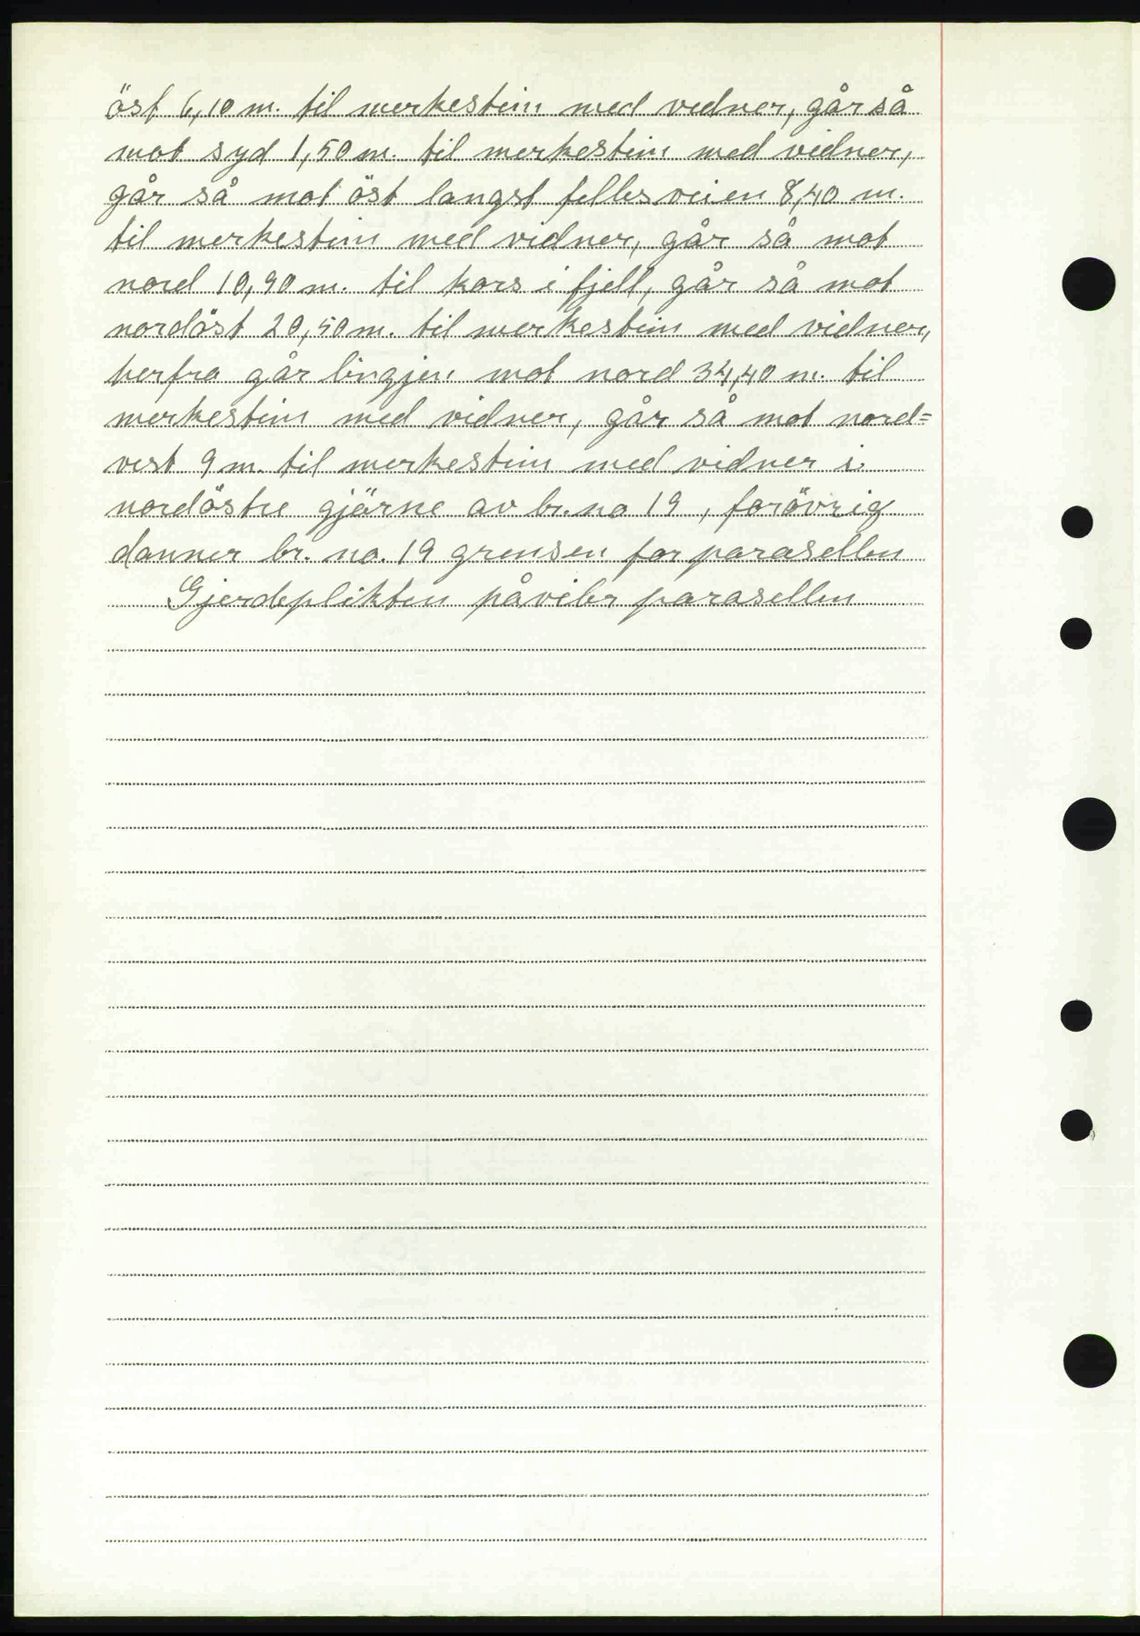 öst 6,10 m. til merkestein med vidner, går så
mot syd 1,50 m. til merkestein med vidner,
går så mot öst langst fellesveien 8,40 m.
til merkestein med vidner, går så mot
nord 10,90 m. til kors i fjell, går så mot
nordöst 20,50 m. til merkestein med vidner,
herfra går lingjen mot nord 34,40 m. til
merkestein med vidner, går så mot nord=
vest 9 m. til merkestein med vidner i
nordöstre gjärne av br. no 19, forövrig
danner br. no. 19 grensen for parasellen
Gjerdeplikten påviler parasellen